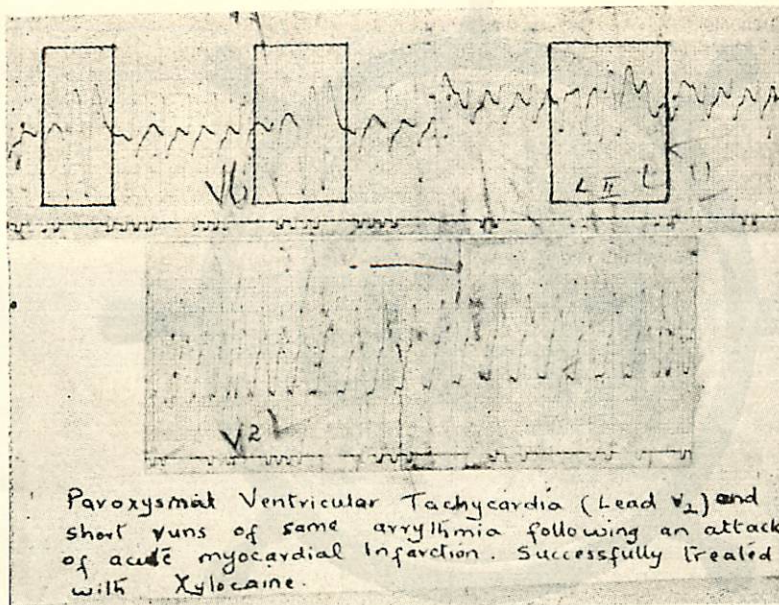 V6
L II
V2
Paroxysmal Ventricular Tachycardia (Lead V2) and
short runs of same arrythmia following an attack
of acute myocardial Infarction. Successfully treated
with Xylocaine.